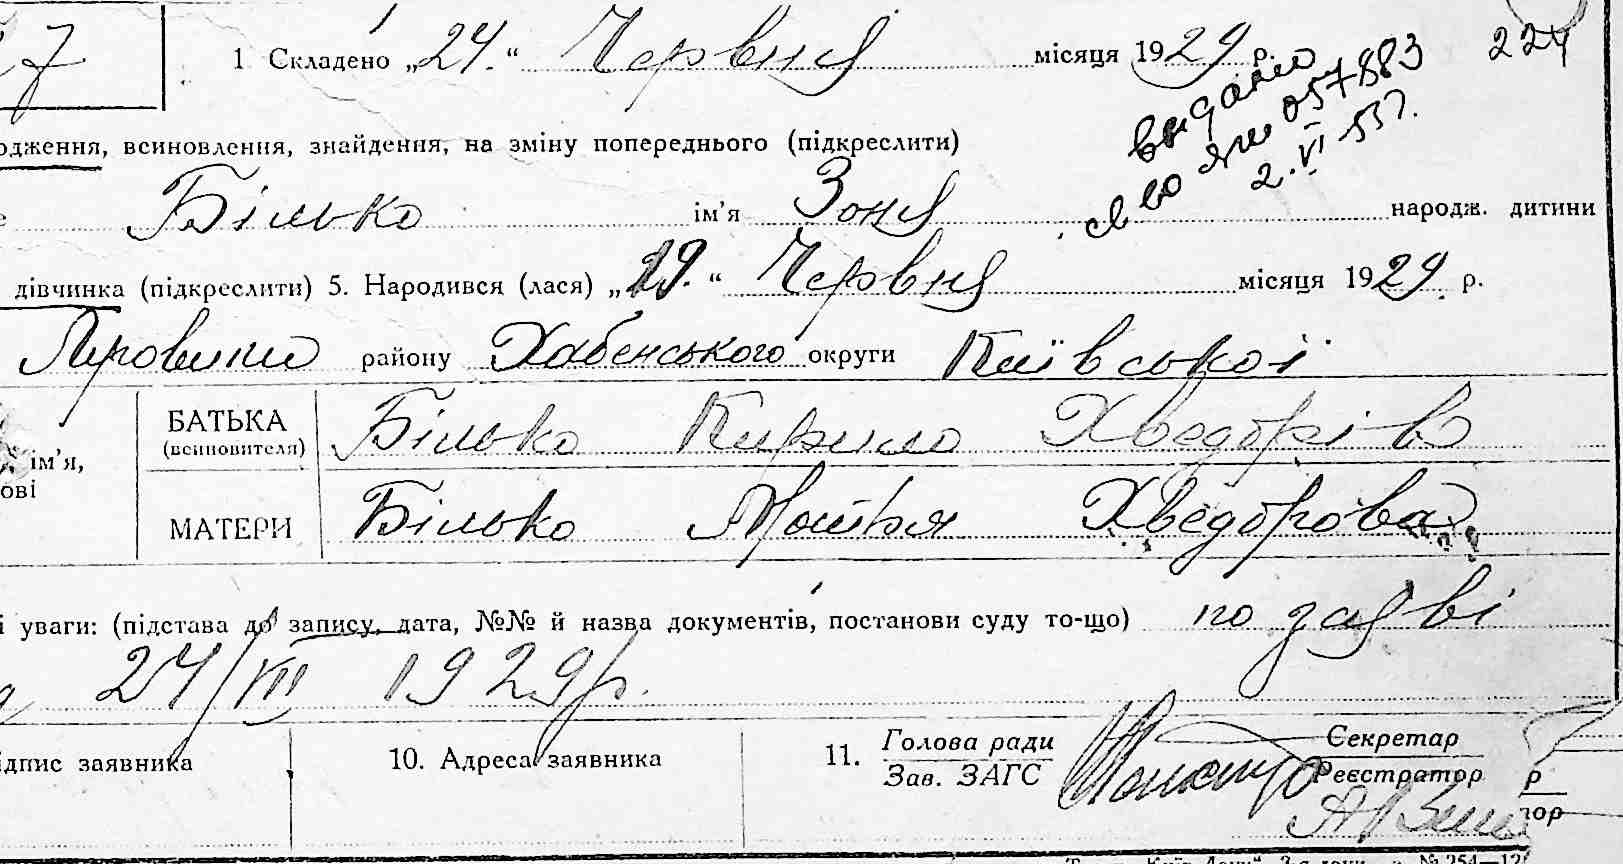 7
1 Складено „24.“ Червня місяця 1929 р. 224
видано
057883
2.VI-55г.
одження, всиновлення, знайдення, на зміну попереднього (підкреслити)
Білько ім’я Зоня народж. дитини
дівчинка (підкреслити) 5. Народився (лася) „19.“ Червня місяця 1929 р.
району Хабенського округи Київської
БАТЬКА Білько Кирило Хведорів
(всиновителя)
ім’я,
ові
МАТЕРИ Білько Мотря Хведорова
і уваги: (підстава до запису, дата, №№ й назва документів, постанови суду то-що) по заяві
24/VII 1929р.
ідпис заявника 10. Адреса заявника 11. Голова ради Секретар
Зав. ЗАГС Реєстратор р
тор
№ 254—12